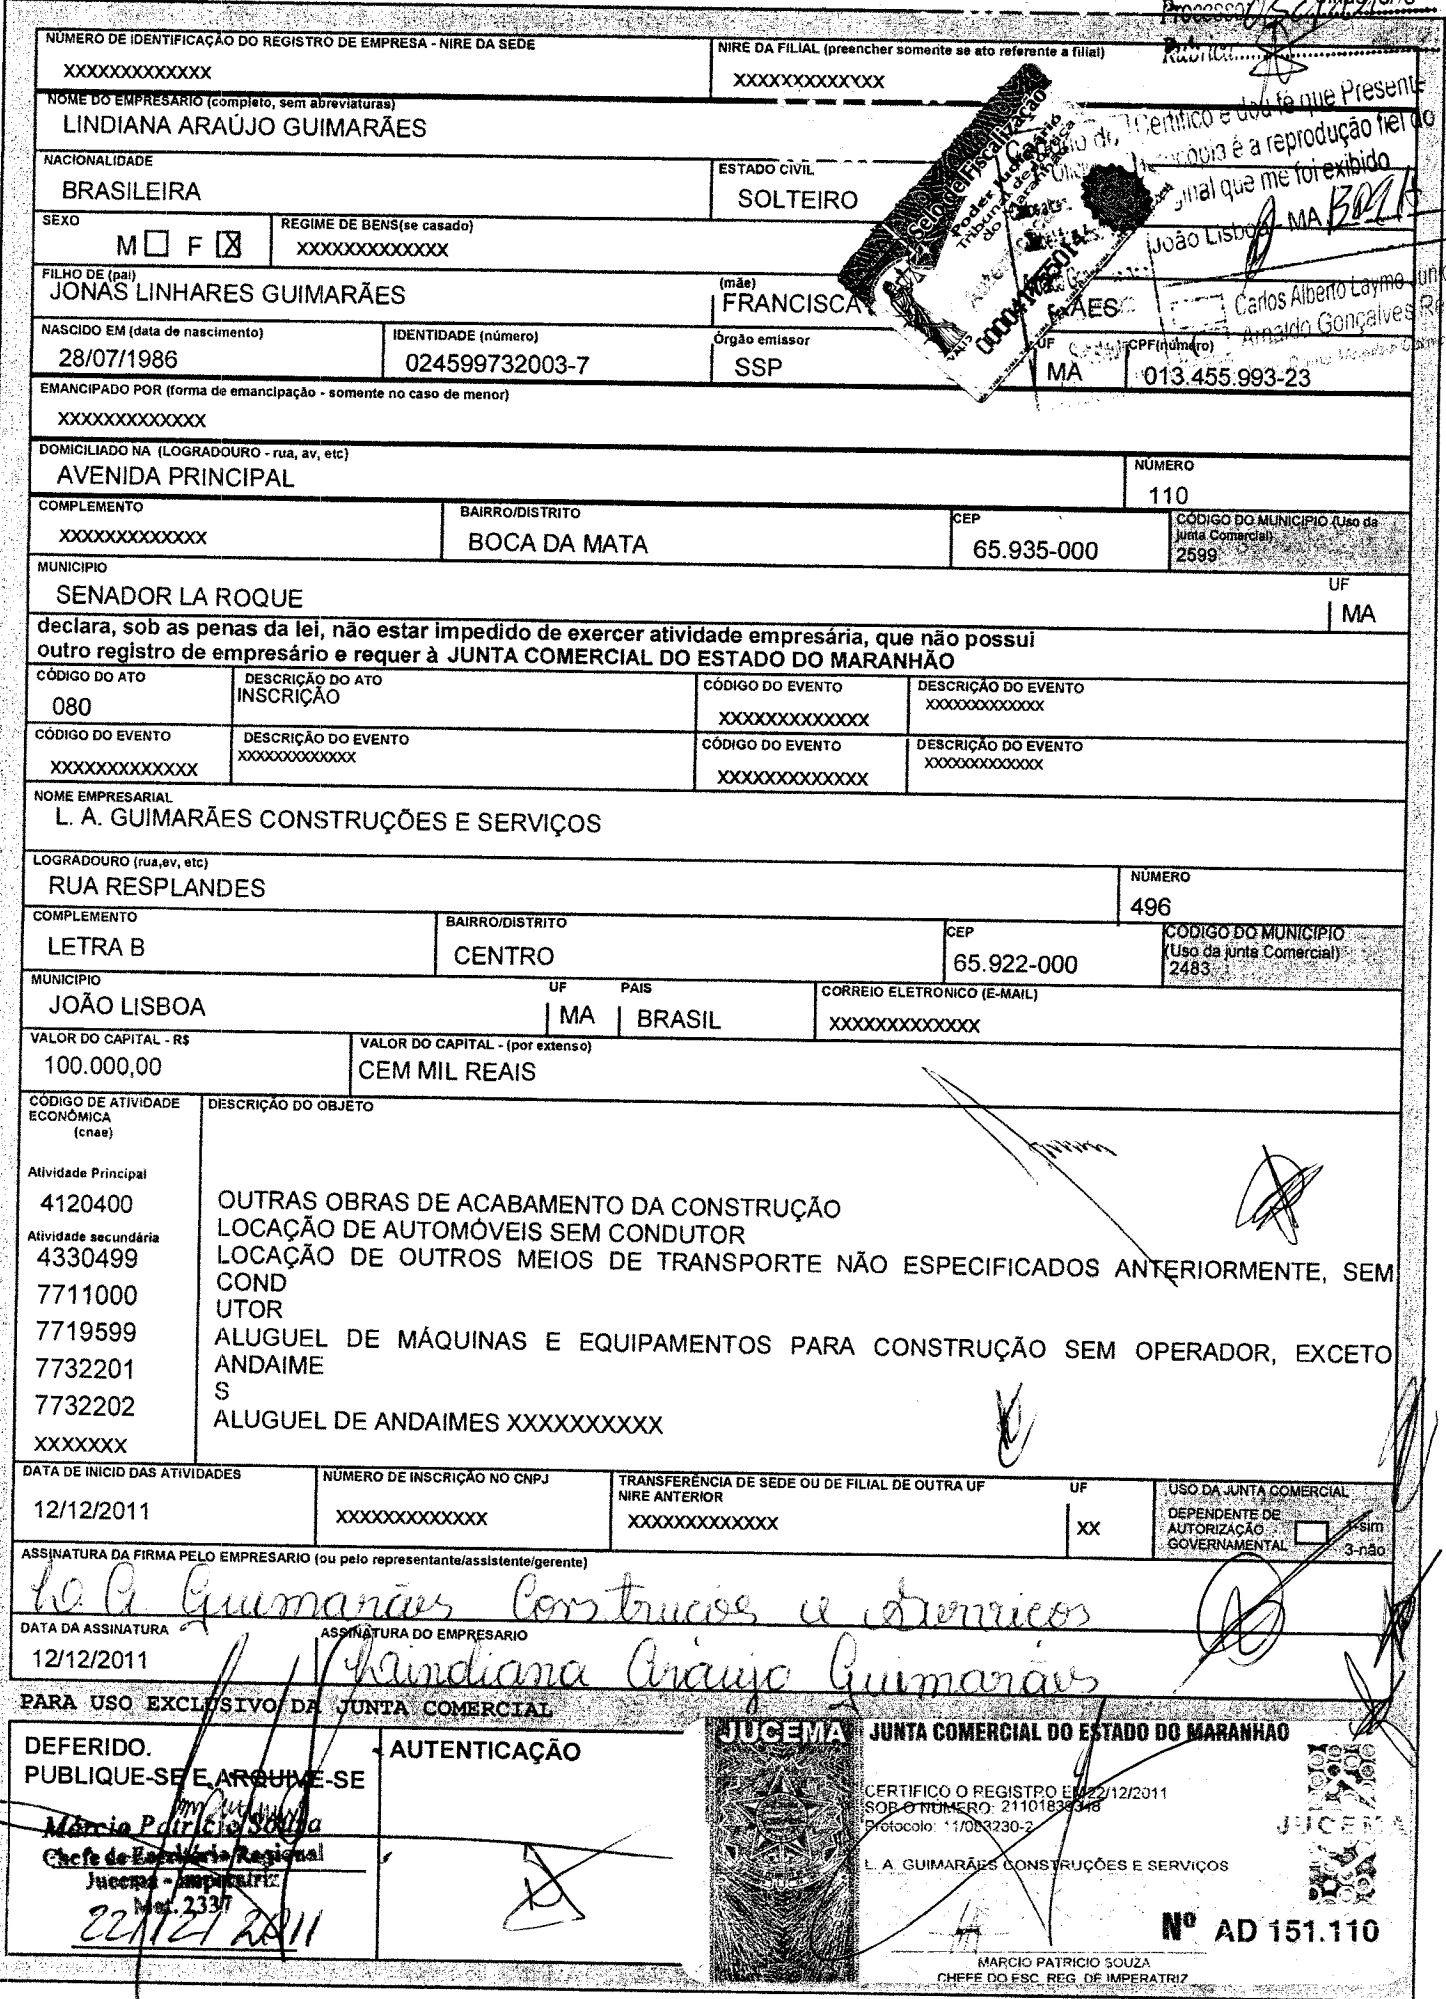 Processo
Rubrica
NÚMERO DE IDENTIFICAÇÃO DO REGISTRO DE EMPRESA - NIRE DA SEDE
XXXXXXXXXXXXX
NIRE DA FILIAL (preencher somente se ato referente a filial)
XXXXXXXXXXXXX
NOME DO EMPRESÁRIO (completo, sem abreviaturas)
LINDIANA ARAÚJO GUIMARÃES
Certifico e dou fé que Presente
é a reprodução fiel do
que me foi exibido
João Lisboa - MA
Carlos Alberto Laymo
Arnaldo Gonçalves
Selo de Fiscalização
Poder Judiciário
Tribunal de Justiça
do Maranhão
NACIONALIDADE
BRASILEIRA
ESTADO CIVIL
SOLTEIRO
SEXO
M F X
REGIME DE BENS(se casado)
XXXXXXXXXXXXX
FILHO DE (pai)
JONAS LINHARES GUIMARÃES
(mãe)
FRANCISCA
NASCIDO EM (data de nascimento)
28/07/1986
IDENTIDADE (número)
024599732003-7
Órgão emissor
SSP
UF
MA
CPF(número)
013.455.993-23
EMANCIPADO POR (forma de emancipação - somente no caso de menor)
XXXXXXXXXXXXX
DOMICILIADO NA (LOGRADOURO - rua, av, etc)
AVENIDA PRINCIPAL
NÚMERO
110
COMPLEMENTO
XXXXXXXXXXXXX
BAIRRO/DISTRITO
BOCA DA MATA
CEP
65.935-000
CÓDIGO DO MUNICIPIO (Uso da
junta Comercial)
2599
MUNICIPIO
SENADOR LA ROQUE
UF
MA
declara, sob as penas da lei, não estar impedido de exercer atividade empresária, que não possui
outro registro de empresário e requer à JUNTA COMERCIAL DO ESTADO DO MARANHÃO
CÓDIGO DO ATO
080
DESCRIÇÃO DO ATO
INSCRIÇÃO
CÓDIGO DO EVENTO
XXXXXXXXXXXXX
DESCRIÇÃO DO EVENTO
XXXXXXXXXXXXX
CÓDIGO DO EVENTO
XXXXXXXXXXXXX
DESCRIÇÃO DO EVENTO
XXXXXXXXXXXXX
CÓDIGO DO EVENTO
XXXXXXXXXXXXX
DESCRIÇÃO DO EVENTO
XXXXXXXXXXXXX
NOME EMPRESARIAL
L. A. GUIMARÃES CONSTRUÇÕES E SERVIÇOS
LOGRADOURO (rua,ev, etc)
RUA RESPLANDES
NÚMERO
496
COMPLEMENTO
LETRA B
BAIRRO/DISTRITO
CENTRO
CEP
65.922-000
CODIGO DO MUNICIPIO
(Uso da junta Comercial)
2483
MUNICIPIO
JOÃO LISBOA
UF
MA
PAIS
BRASIL
CORREIO ELETRONICO (E-MAIL)
XXXXXXXXXXXXX
VALOR DO CAPITAL - R$
100.000,00
VALOR DO CAPITAL - (por extenso)
CEM MIL REAIS
CÓDIGO DE ATIVIDADE
ECONÔMICA
(cnae)
DESCRIÇÃO DO OBJETO
Atividade Principal
4120400
Atividade secundária
4330499
7711000
7719599
7732201
7732202
XXXXXXX
OUTRAS OBRAS DE ACABAMENTO DA CONSTRUÇÃO
LOCAÇÃO DE AUTOMÓVEIS SEM CONDUTOR
LOCAÇÃO DE OUTROS MEIOS DE TRANSPORTE NÃO ESPECIFICADOS ANTERIORMENTE, SEM
COND
UTOR
ALUGUEL DE MÁQUINAS E EQUIPAMENTOS PARA CONSTRUÇÃO SEM OPERADOR, EXCETO
ANDAIME
S
ALUGUEL DE ANDAIMES XXXXXXXXXX
DATA DE INICIO DAS ATIVIDADES
12/12/2011
NÚMERO DE INSCRIÇÃO NO CNPJ
XXXXXXXXXXXXX
TRANSFERÊNCIA DE SEDE OU DE FILIAL DE OUTRA UF
NIRE ANTERIOR
XXXXXXXXXXXXX
UF
XX
USO DA JUNTA COMERCIAL
DEPENDENTE DE
AUTORIZAÇÃO
GOVERNAMENTAL
1-sim
3-não
ASSINATURA DA FIRMA PELO EMPRESARIO (ou pelo representante/assistente/gerente)
L. A. Guimarães Construções e Serviços
DATA DA ASSINATURA
12/12/2011
ASSINATURA DO EMPRESARIO
Lindiana Araujo Guimarães
PARA USO EXCLUSIVO DA JUNTA COMERCIAL
DEFERIDO.
PUBLIQUE-SE E ARQUIVE-SE
Márcio Patrício Souza
Chefe do Escritório Regional
Jucema - Imperatriz
Mat. 2337
22/12/2011
AUTENTICAÇÃO
JUCEMA
JUNTA COMERCIAL DO ESTADO DO MARANHAO
CERTIFICO O REGISTRO EM 22/12/2011
SOB O NÚMERO:
Protocolo: 11/083230-2
L. A. GUIMARÃES CONSTRUÇÕES E SERVIÇOS
JUCEMA
Nº AD 151.110
MARCIO PATRICIO SOUZA
CHEFE DO ESC. REG. DE IMPERATRIZ